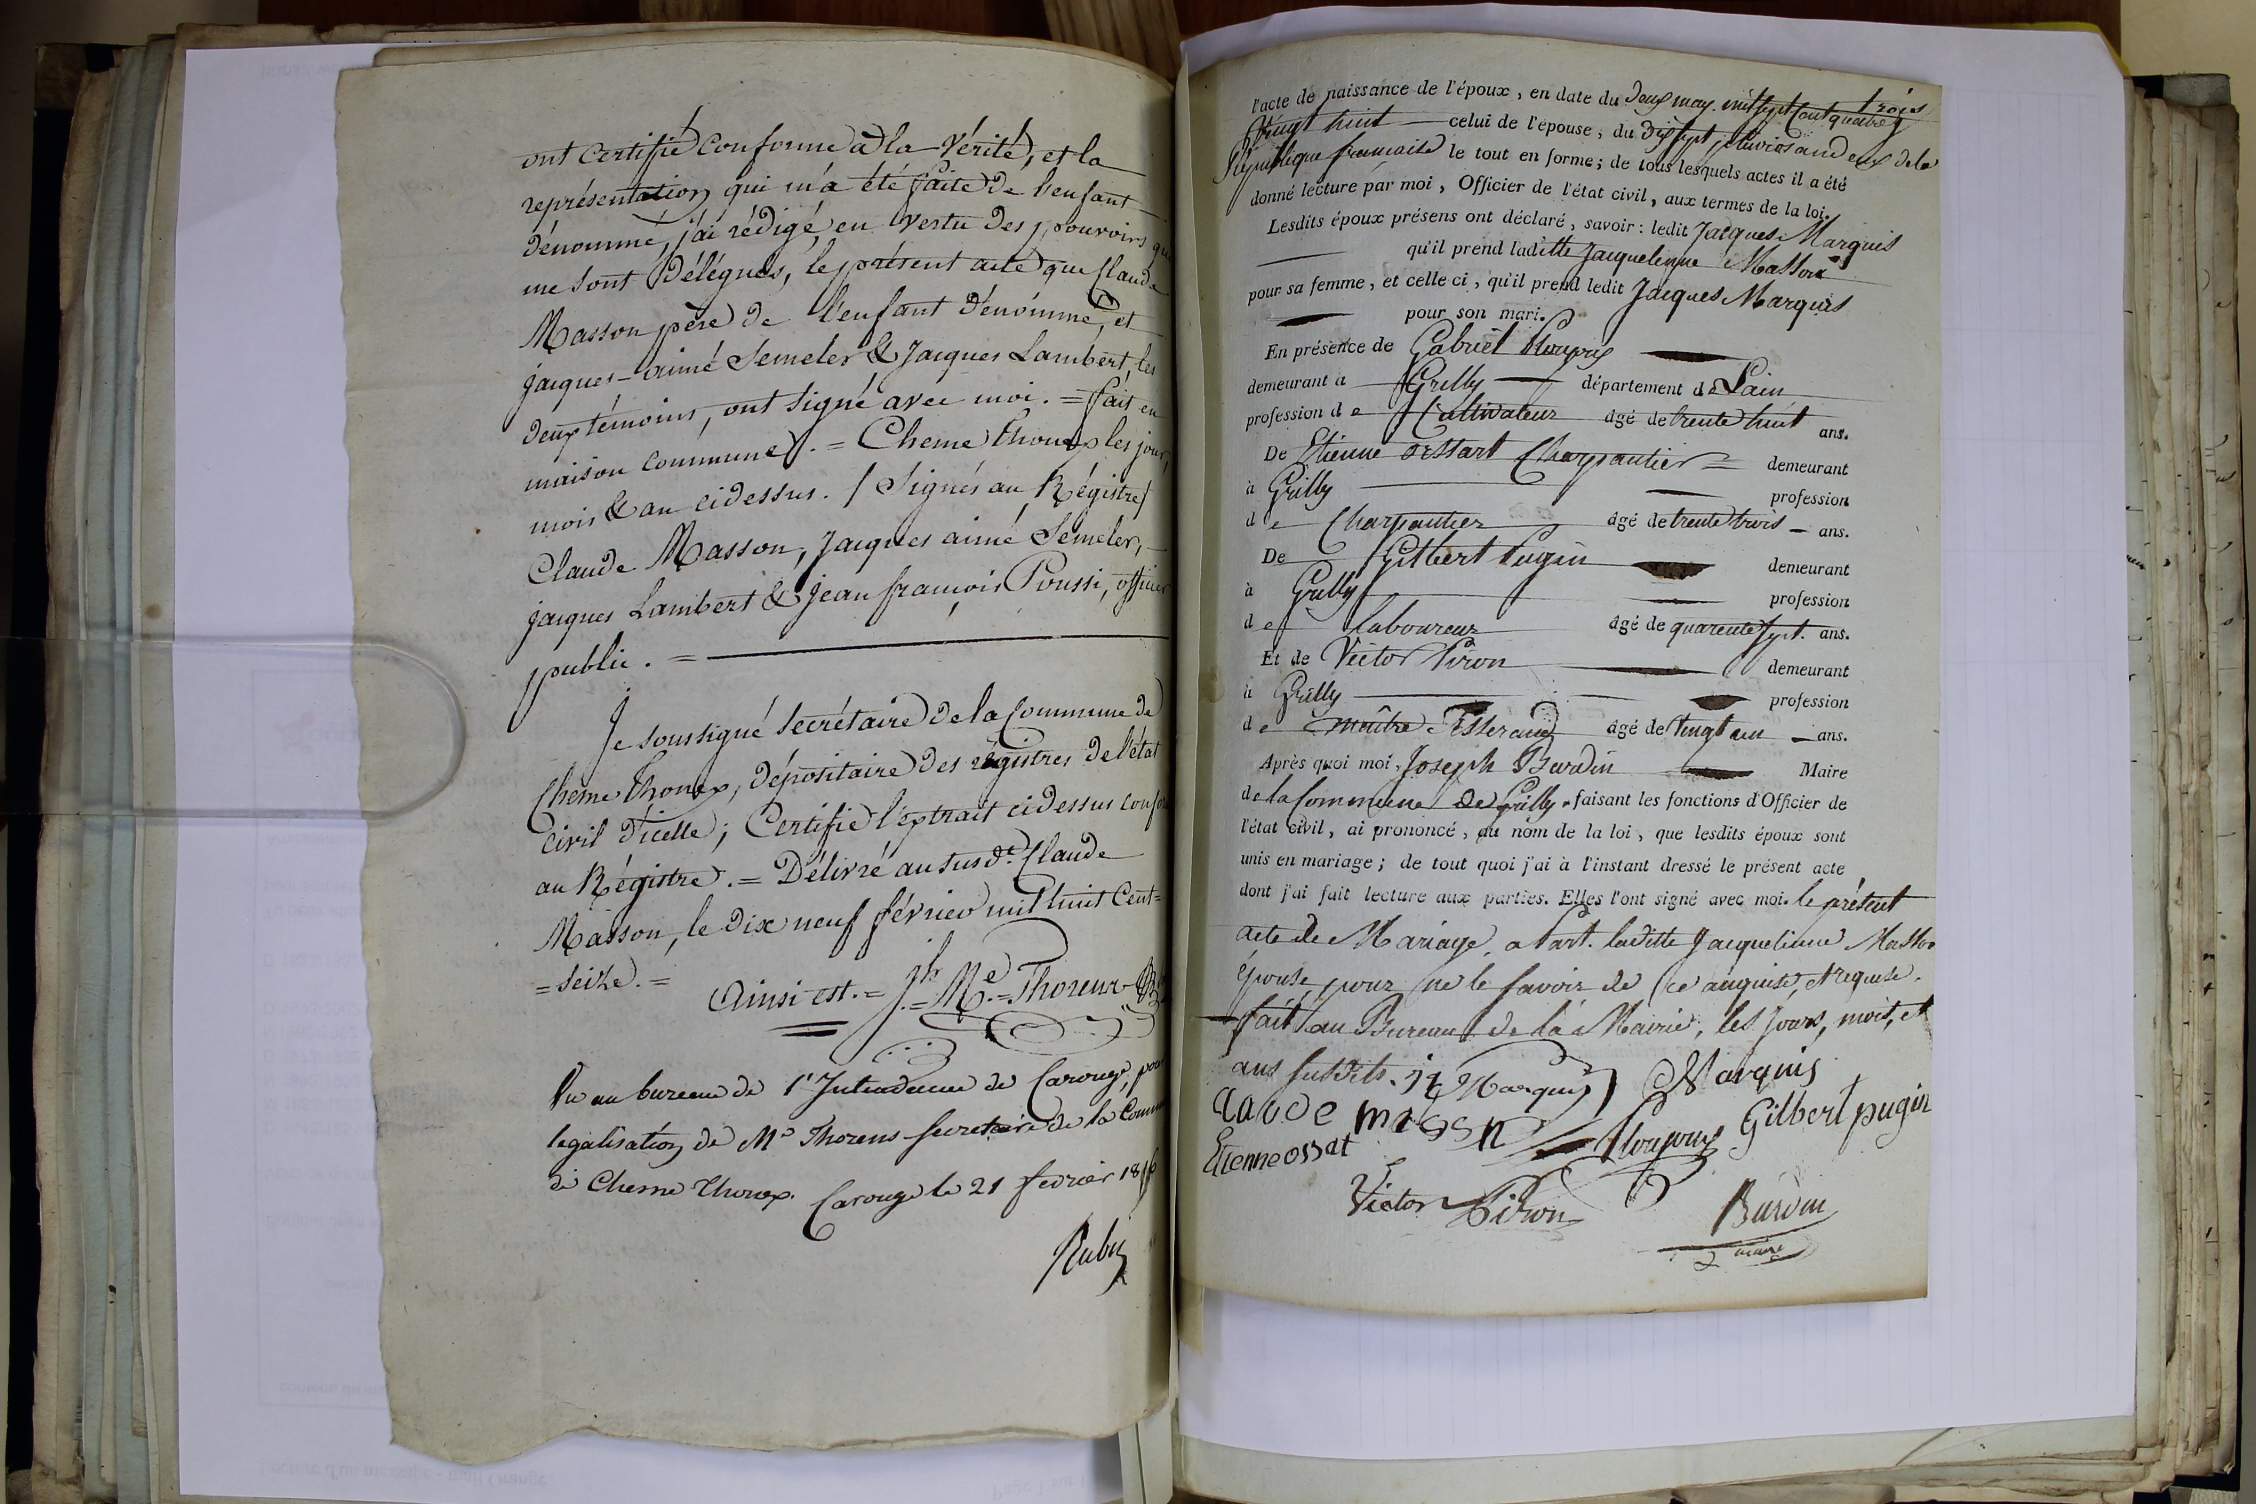 ont certifié conforme à la vérité, et la
représentation qui m'a été faite de l'enfant
dénommé, j'ai rédigé, en vertu des pouvoirs qui
me sont délégués, le présent acte que Claude
Masson père de l'enfant dénommé, et
jacques-aimé Semeler & Jacques Lambert, les
deux témoins, ont signé avec moi. = fait en
maison commune. = Chene thonex les jour,
mois & an cidessus. / Signés au Régistre /
Claude Masson, Jacques aimé Semeler,
jacques Lambert & jean françois Poussi, officier
public. =
Je soussigné secrétaire de la Commune de
Chene Thonex, dépositaire des régistres de l'état
civil d'icelle; Certifie l'éxtrait cidessus conforme
au Régistre. = Délivré au susd.t Claude
Masson, le dix neuf février mil huit cent=
=seize.=
Ainsi est. = jh = Me. = Thorens
Vu au bureau de l'Intendance de Carouge, pour
legalisation de Me Thorens secretaire de la Commune
de Chene Thonex. Carouge le 21 fevrier 1816
l'acte de naissance de l'époux, en date du deux may mil sept cent quatre
vingt trois
huit celui de l'épouse, du dix sept pluvios an deux de la
République francaise le tout en forme; de tous lesquels actes il a été
donné lecture par moi, Officier de l'état civil, aux termes de la loi.
Lesdits époux présens ont déclaré, savoir: ledit Jacques Marquis
qu'il prend laditte Jacquelinne Masson
pour sa femme, et celle ci, qu'il prend ledit Jacques Marquis
pour son mari.
En présence de Gabriel
demeurant à Grilly département de Lain
profession de Cultivateur âgé de trente huit ans.
De Etienne ossart Charpantier = demeurant
à Grilly profession
de Charpantier âgé de trente trois ans.
De Gilbert Pugin demeurant
à Grilly profession
de laboureur âgé de quarente sept. ans.
Et de Victor Piron demeurant
à Grilly profession
de maître Tisserand âgé de vingt un ans.
Après quoi moi, Joseph Burdin Maire
de la Commune de Grilly faisant les fonctions d'Officier de
l'état civil, ai prononcé, au nom de la loi, que lesdits époux sont
unis en mariage; de tout quoi j'ai à l'instant dressé le présent acte
dont j'ai fait lecture aux parties. Elles l'ont signé avec moi. le présent
acte de Mariage, a part. laditte Jacquelinne Masson
épouse, pour ne le savoir de ce anquise, et requise.
fait au Bureau de la Mairie, les jours, mois, et
ans susdits. Marquis Marquis
claude masson Gilbert pugin
Etienne ossat
Victor Piron Burdin
maire